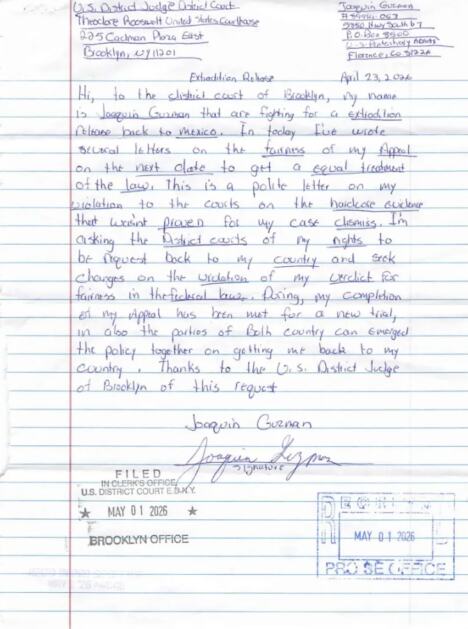 U.S. District Judge District Court
Theodore Roosevelt United States Courthouse
225 Cadman Plaza East
Brooklyn, NY 11201
Joaquin Guzman
5880 Hwy South 67
P.O. Box 8500
Florence, Co 81226
Extradition Release
April 23, 2026
Hi, to the district court of Brooklyn, my name
is Joaquin Guzman that are fighting for a extradition
release back to mexico. In today I've wrote
several letters on the fairness of my Appeal
on the next date to get a equal treatment
of the law. This is a polite letter on my
violation to the courts on the hardcase evidence
that wasn't proven for my case dismiss. I'm
asking the District courts of my rights to
be request back to my country and seek
changes on the violation of my verdict for
fairness in the federal laws. During, my completion
of my Appeal has been met for a new trial,
in also the parties of Both country can emerged
the policy together on getting me back to my
country. Thanks to the U.S. District Judge
of Brooklyn of this request
Joaquin Guzman
signature
FILED
IN CLERK'S OFFICE
U.S. DISTRICT COURT E.D.N.Y.
★ MAY 01 2026 ★
BROOKLYN OFFICE
MAY 01 2026
PRO SE OFFICE